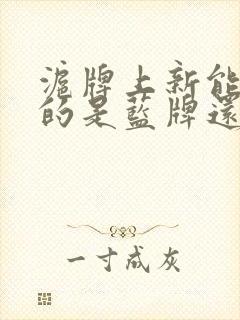 滬牌上新能
的是藍牌還
一寸成灰